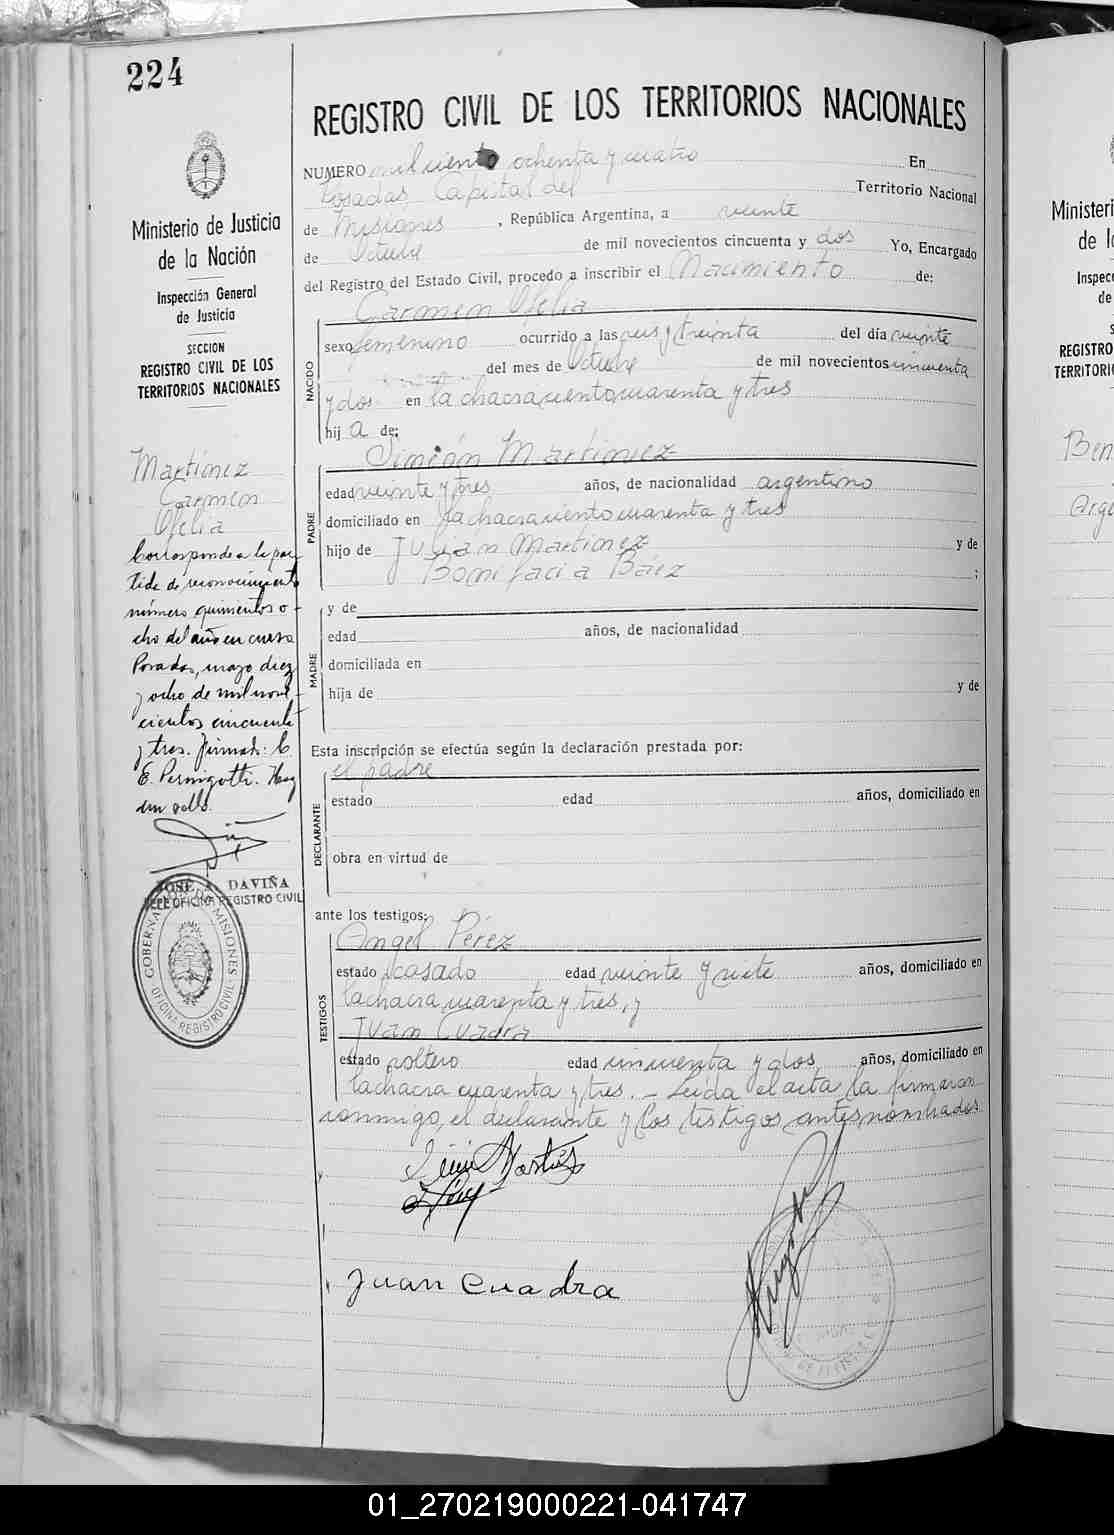 224
REGISTRO CIVIL DE LOS TERRITORIOS NACIONALES
Ministerio de Justicia
de la Nación
Inspección General
de Justicia
SECCION
REGISTRO CIVIL DE LOS
TERRITORIOS NACIONALES
NUMERO mil ciento ochenta y cuatro En
Posadas, Capital del Territorio Nacional
de Misiones, República Argentina, a veinte
de Octubre de mil novecientos cincuenta y dos Yo, Encargado
del Registro del Estado Civil, procedo a inscribir el Nacimiento de:
NACIDO
Carmen Ofelia
sexo femenino ocurrido a las seis y treinta del día veinte
del mes de Octubre de mil novecientos cincuenta
y dos en la chacra ciento cuarenta y tres
hij a de:
PADRE
Simeón Martinez
edad veinte y tres años, de nacionalidad argentino
domiciliado en la chacra ciento cuarenta y tres
hijo de Julian Martinez y de
Bonifacia Báez ;
MADRE
y de
edad años, de nacionalidad
domiciliada en
hija de y de
Esta inscripción se efectúa según la declaración prestada por:
DECLARANTE
el padre
estado edad años, domiciliado en
obra en virtud de
ante los testigos:
TESTIGOS
Angel Pérez
estado casado edad veinte y siete años, domiciliado en
la chacra cuarenta y tres, y
Juan Cuadra
estado soltero edad cincuenta y dos años, domiciliado en
la chacra cuarenta y tres. - Leída el acta la firmaron
conmigo, el declarante y los testigos antes nombrados
Juan Cuadra
Martinez
Carmen
Ofelia
Corresponde a la par
tida de reconocimiento
número quinientos o-
cho del año en curso
Posadas, mayo diez
y ocho de mil nove-
cientos cincuenta
y tres. Firmado: C.
E. Pernigotti. Hay
un sello.
JOSE A. DAVIÑA
JEFE OFICINA REGISTRO CIVIL
GOBERNACION DE MISIONES
OFICINA REGISTRO CIVIL
Minister
de l
Inspec
de
REGISTRO
TERRITORI
Ben
Arge
01_270219000221-041747